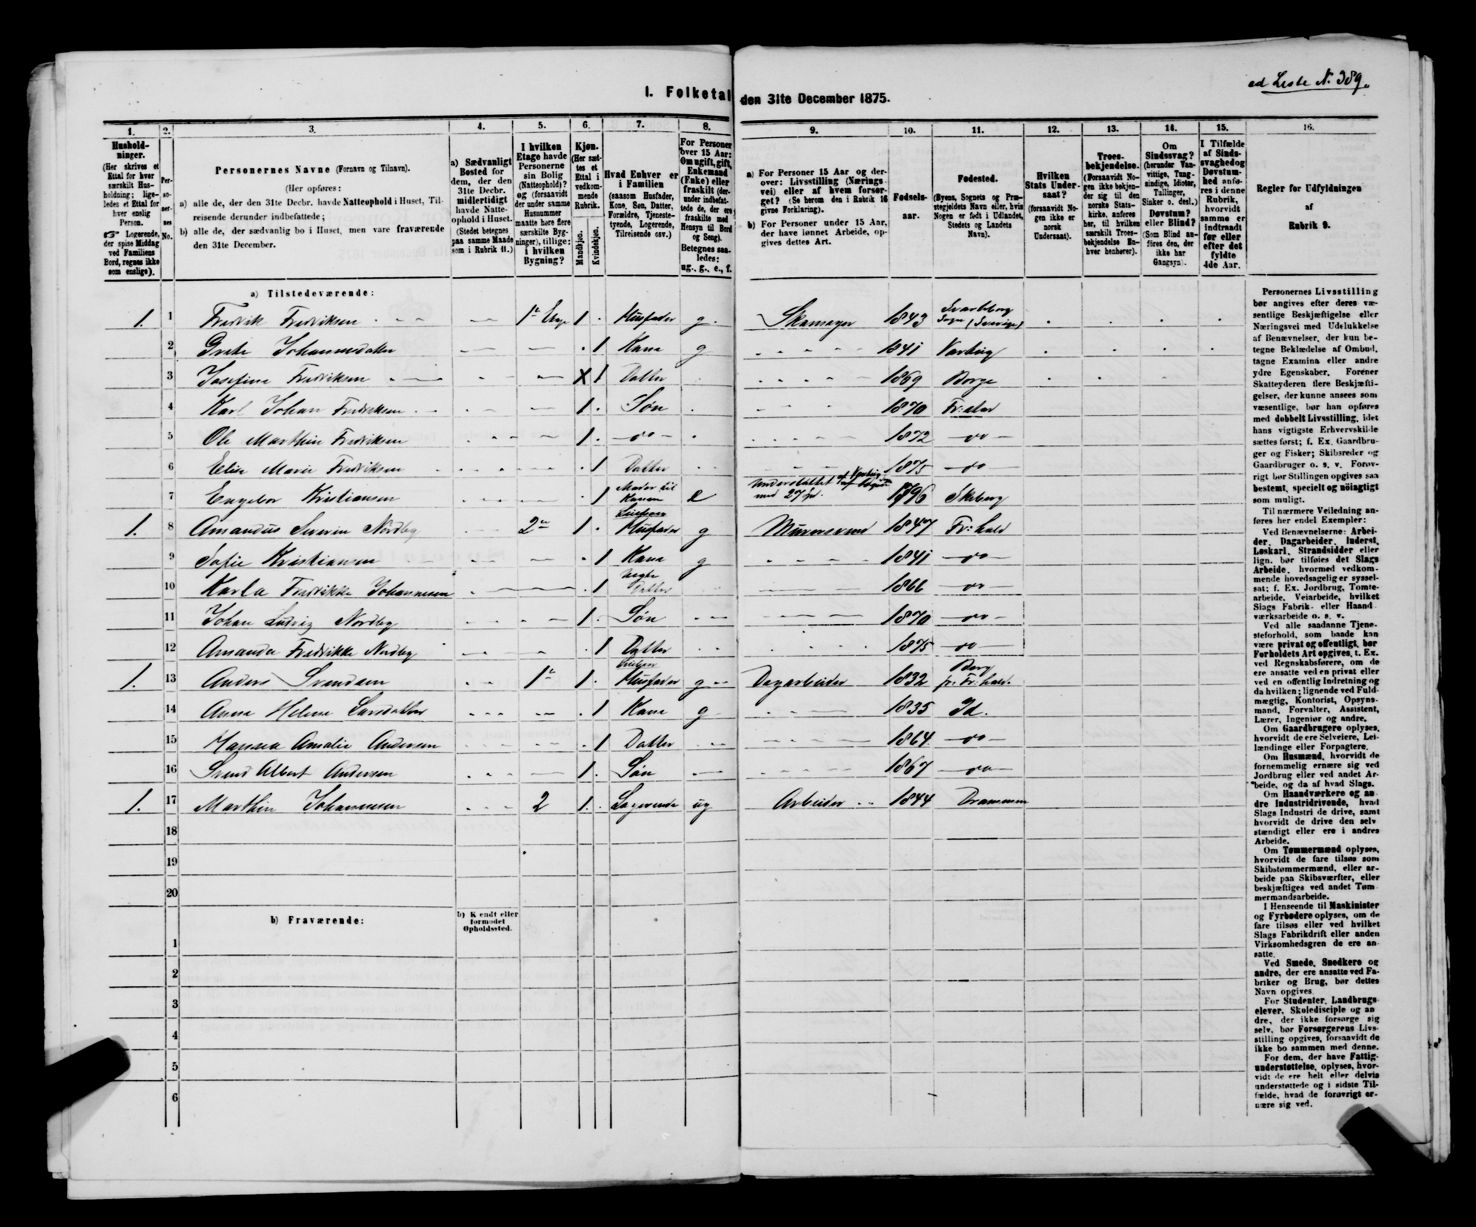 ad Liste N. 389.
I. Folketal den 31te December 1875.
1. 2. 3. 4. 5. 6. 7. 8. 9. 10. 11. 12. 13. 14. 15. 16.
Hushold-
ninger.
(Her skrives et
Ettal for hver
særskilt Hus-
holdning; lige-
ledes et Ettal for
hver enslig
Person.
☞ Logerende,
der spise Middag
ved Familiens
Bord, regnes ikke
som enslige).
Per-
so-
ner-
nes
No.
Personernes Navne (Fornavn og Tilnavn).
(Her opføres:
a) alle de, der den 31te Decbr. havde Natteophold i Huset, Til-
reisende derunder indbefattede;
b) alle de, der sædvanlig bo i Huset, men vare fraværende
den 31te December.
a) Sædvanligt
Bosted for
dem, der den
31te Decbr.
midlertidigt
havde Natte-
ophold i Huset.
(Stedet betegnes
paa samme Maade
som i Rubrik 11.)
I hvilken
Etage havde
Personerne
sin Bolig
(Natteophold)?
og (forsaavidt
der under samme
Husnummer
maatte høre flere
særskilte Byg-
ninger), tillige:
i hvilken
Bygning?
Kjøn.
(Her sæt-
tes et
Ettal i
vedkom-
mende
Rubrik.
Mandkjøn.
Kvindekjøn.
Hvad Enhver er
i Familien
(saasom Husfader,
Kone, Søn, Datter,
Forældre, Tjeneste-
tyende, Logerende,
Tilreisende osv.)
For Personer
over 15 Aar:
Om ugift, gift,
Enkemand
(Enke) eller
fraskilt (der-
under indbefat-
tede de, der ere
fraskilte med
Hensyn til Bord
og Seng).
Betegnes saa-
ledes:
ug., g., e., f.
a) For Personer 15 Aar og der-
over: Livsstilling (Nærings-
vei) eller af hvem forsør-
get? (Se herom den i Rubrik 16
givne Forklaring).
b) For Personer under 15 Aar,
der have lønnet Arbeide, op-
gives dettes Art.
Fødsels-
aar.
Fødested.
(Byens, Sognets og Præ-
stegjeldets Navn eller, hvis
Nogen er født i Udlandet,
Stedets og Landets
Navn).
Hvilken
Stats Under-
saat?
(forsaavidt No-
gen ikke er
norsk
Undersaat).
Troes-
bekjendelse.
(Forsaavidt No-
gen ikke bekjen-
der sig til den
norske Stats-
kirke, anføres
her, til hvilken
særskilt Troes-
bekjendelse En-
hver henhører).
Om
Sindssvag?
(herunder Van-
vittige, Tung-
sindige, Idioter,
Tullinger,
Sinker o. desl.)
Døvstum?
eller Blind?
(Som Blind an-
føres den, der
ikke har
Gangsyn).
I Tilfælde
af Sinds-
svaghed og
Døvstum-
hed anfø-
res i denne
Rubrik,
hvorvidt
samme er
indtraadt
før eller
efter det
fyldte
4de Aar.
Regler for Udfyldningen
af
Rubrik 9.
a) Tilstedeværende:
1. 1 Fredrik Fredriksen 1ste Etage 1 Husfader g. Skomager 1843 Sogn (Sverige)
2 Grete Johannesdatter 1 Kone g 1841 Varteig
3 Josefine Fredriksen 1 Datter 1869 Borge
4 Karl Johan Fredriksen 1 Søn 1870 Fr:stad
5 Ole Marthin Fredriksen 1 1872
6 Elise Marie Fredriksen 1 Datter 1875
7 Engebor Kristiansen 1 Moder til Konen e Understøttet 1796 Skiberg
1. 8 Amandus Severin Nordby 2 1 Husfader g Murersvend 1847 Fr:hald
9 Sofie Kristiansen 1 Kone g 1841
10 Karla Fredrikke Johannesen 1 Datter 1866
11 Johan Ludvig Nordby 1 Søn 1870
12 Amanda Fredrikke Nordby 1 Datter 1875
1. 13 Anders Svendsen 1 1 Husfader g Dagarbeider 1832 Berg pr. Fr:hald.
14 Anna Helene Larsdatter 1 Kone g 1835 Id.
15 Hanna Amalie Andersen 1 Datter 1864
16 Svend Albert Andersen 1 Søn 1867
1. 17 Marthin Johannesen 2 1 Logerende ug Arbeider 1844 Drammen
18
19
20
b) Fraværende: b) Kjendt eller
formodet
Opholdssted.
1
2
3
4
5
6
Personernes Livsstilling
bør angives efter deres væ-
sentlige Beskjæftigelse eller
Næringsvei med Udelukkelse
af Benævnelser, der kun be-
tegne Beklædelse af Ombud,
tagne Examina eller andre
ydre Egenskaber. Forener
Skatteyderen flere Beskjæfti-
gelser, der kunne ansees som
væsentlige, bør han opføres
med dobbelt Livsstilling, idet
hans vigtigste Erhvervskilde
sættes først; f. Ex. Gaardbru-
ger og Fisker; Skibsreder og
Gaardbruger o. s. v. Forøv-
rigt bør Stillingen opgives saa
bestemt, specielt og nöiagtigt
som muligt.
Til nærmere Veiledning an-
føres her endel Exempler:
Ved Benævnelserne: Arbei-
der, Dagarbeider, Inderst,
Løskarl, Strandsidder eller
lign. bør tilføies det Slags
Arbeide, hvormed vedkom-
mende hovedsagelig er syssel-
sat; f. Ex. Jordbrug, Tomte-
arbeide, Veiarbeide, hvilket
Slags Fabrik- eller Haand-
værksarbeide o. s. v.
Ved alle saadanne Tjene-
steforhold, som baade kan
være privat og offentligt, bør
Forholdets Art opgives, t. Ex.
ved Regnskabsførere, om de
ere ansatte ved en privat eller
ved en offentlig Indretning og
da hvilken; lignende ved Fuld-
mægtig, Kontorist, Opsyns-
mand, Forvalter, Assistent,
Lærer, Ingeniør og andre.
Om Gaardbrugere oplyses,
hvorvidt de ere Selveiere, Lei-
lændinge eller Forpagtere.
Om Husmænd, hvorvidt de
fornemmelig ernære sig ved
Jordbrug eller ved andet Ar-
beide, og da af hvad Slags.
Om Haandværkere og an-
dre Industridrivende, hvad
Slags Industri de drive, samt
hvorvidt de drive den selv-
stændigt eller ere i andres
Arbeide.
Om Tømmermænd oplyses,
hvorvidt de fare tilsøs som
Skibstømmermænd, eller ar-
beide paa Skibsværfter, eller
beskjæftiges ved andet Tøm-
mermandsarbeide.
I Henseende til Maskinister
og Fyrbødere oplyses, om de
fare tilsøs eller ved hvilket
Slags Fabrikdrift eller anden
Virksomhedsgren de ere an-
satte.
Ved Smede, Snedkere og
andre, der ere ansatte ved Fa-
briker og Brug, bør dettes
Navn opgives.
For Studenter, Landbrugs-
elever, Skoledisciple og an-
dre, der ikke forsørge sig
selv, bør Forsørgerens Livs-
stilling opgives, forsaavidt de
ikke bo sammen med denne.
For dem, der have Fattig-
understøttelse, oplyses, hvor-
vidt de ere helt eller delvis
understøttede og i sidste Til-
fælde, hvad de forøvrigt er-
nære sig ved.